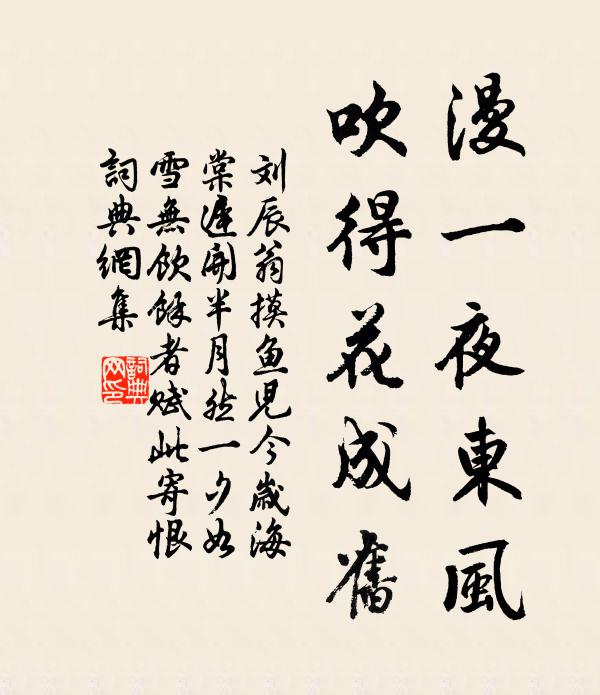 漫一夜東風
吹得花成舊
刘辰翁摸鱼児今歲海
棠遲開半月然一夕如
雪無飲餘者赋此寄恨
詞典網集
詞典
网印